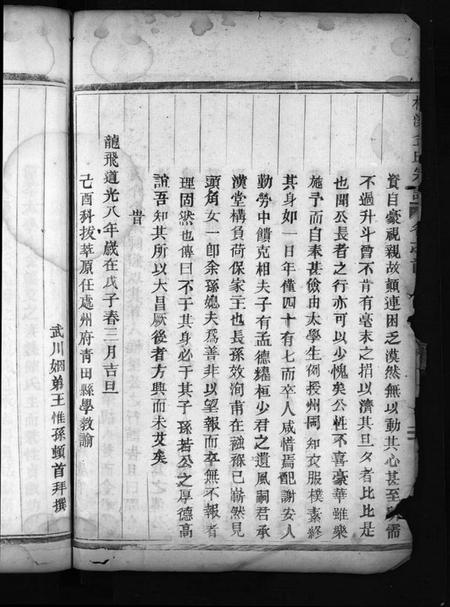 資自豪視親故顛連困乏漠然無以動其心甚至所需
不過升斗曾不肯有毫末之捐以濟其旦夕者比比是
也聞公長者之行亦可以少愧矣公性不喜豪華雖樂
施予而自奉甚儉由太學生例授州同知衣服樸素終
其身如一日年僅四十有七而卒人咸惜焉配謝安人
勤勞中饋克相夫子有孟德耀桓少君之遺風嗣君承
漢堂構負荷保家主也長孫效洵甫在襁褓已嶄然見
頭角女一卽余孫媳夫爲善非以望報而卒無不報者
理固然也傳曰不于其身必于其子孫若公之厚德高
誼吾知其所以大昌厥後者方興而未艾矣
旹
龍飛道光八年歲在戊子春三月吉旦
己酉科拔萃原任處州府青田縣學教諭
武川姻弟王惟孫頓首拜撰